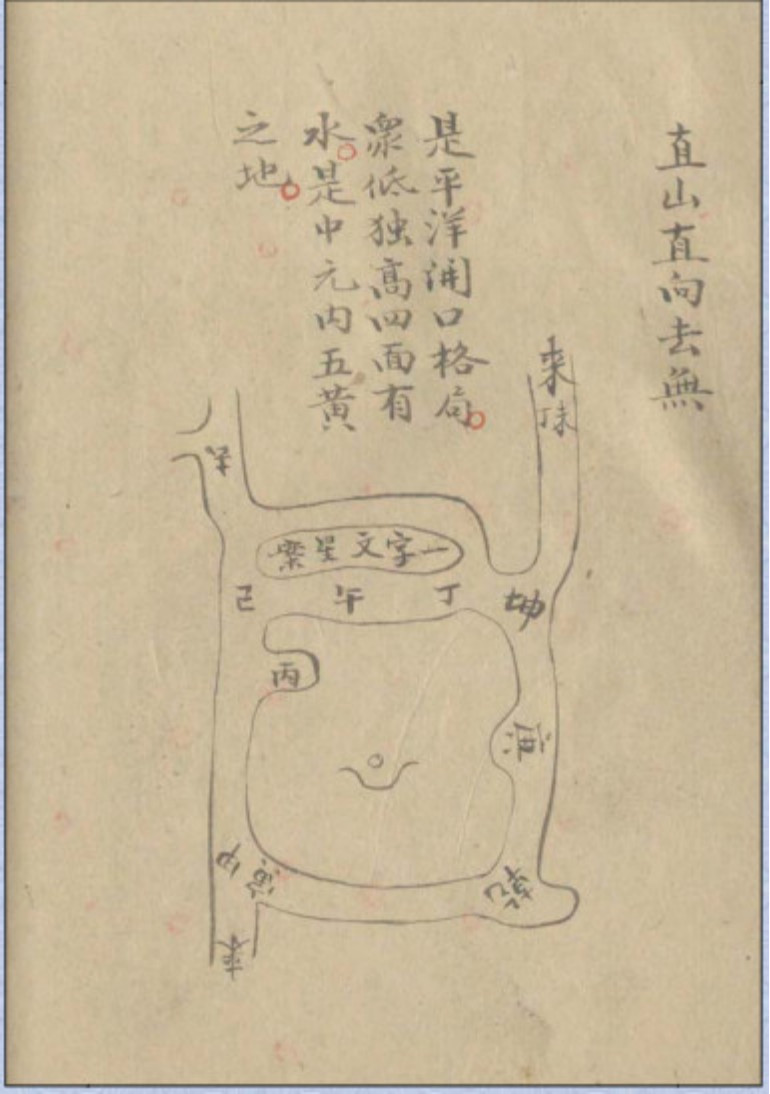 直山直向去無
是平洋開口格局
衆低独高四面有
水是中元内五黄
之地
来
一字文星案
巳 午 丁 坤
丙
寅甲
乾
来